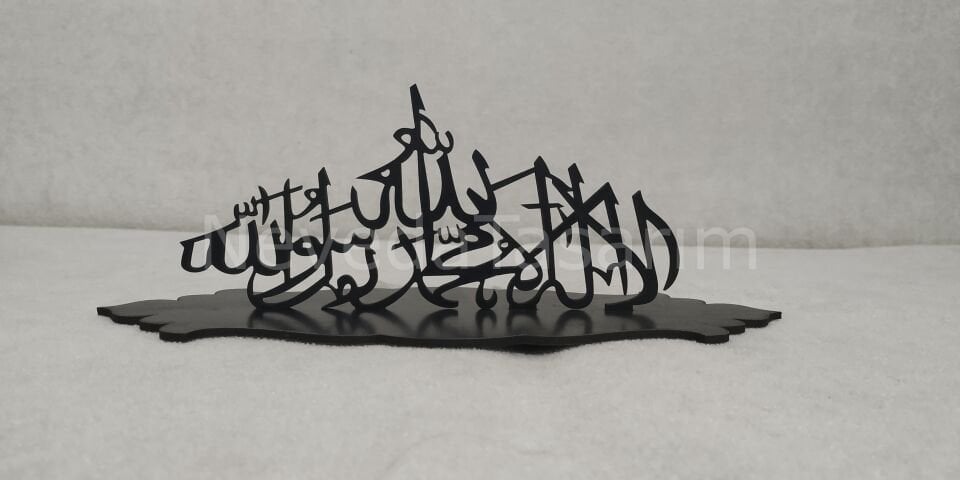 لا إله إلا الله محمد رسول الله
Nevvcda Tasarım